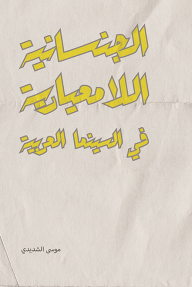 الجنسانية
اللامعيارية
في السينما العربية
موسى الشديدي